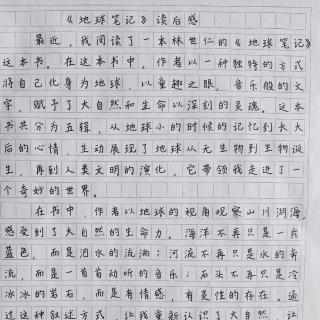 《地球笔记》读后感
最近，我阅读了一本林世仁的《地球笔记》
这本书。在这本书中，作者以一种独特的方式
将自己化身为地球，以童趣之眼，音乐般的文
字，赋予了大自然和生命以深刻的灵魂。这本
书共分为五辑，从地球小的时候的记忆到长大
后的心情，生动展现了地球从无生物到生物诞
生，再到人类文明的演化，它带领我走进了一
个奇妙的世界。
在书中，作者以地球的视角观察山川湖海，
感受到了大自然的生命力。海洋不再只是一片
蓝色，而是泪水的流淌；河流不再只是水的奔
流，而是一首首动听的音乐；石头不再只是冷
冰冰的岩石，而是有情感，有灵性的存在。通
过这种叙述方式，让我重新认识了大自然，让